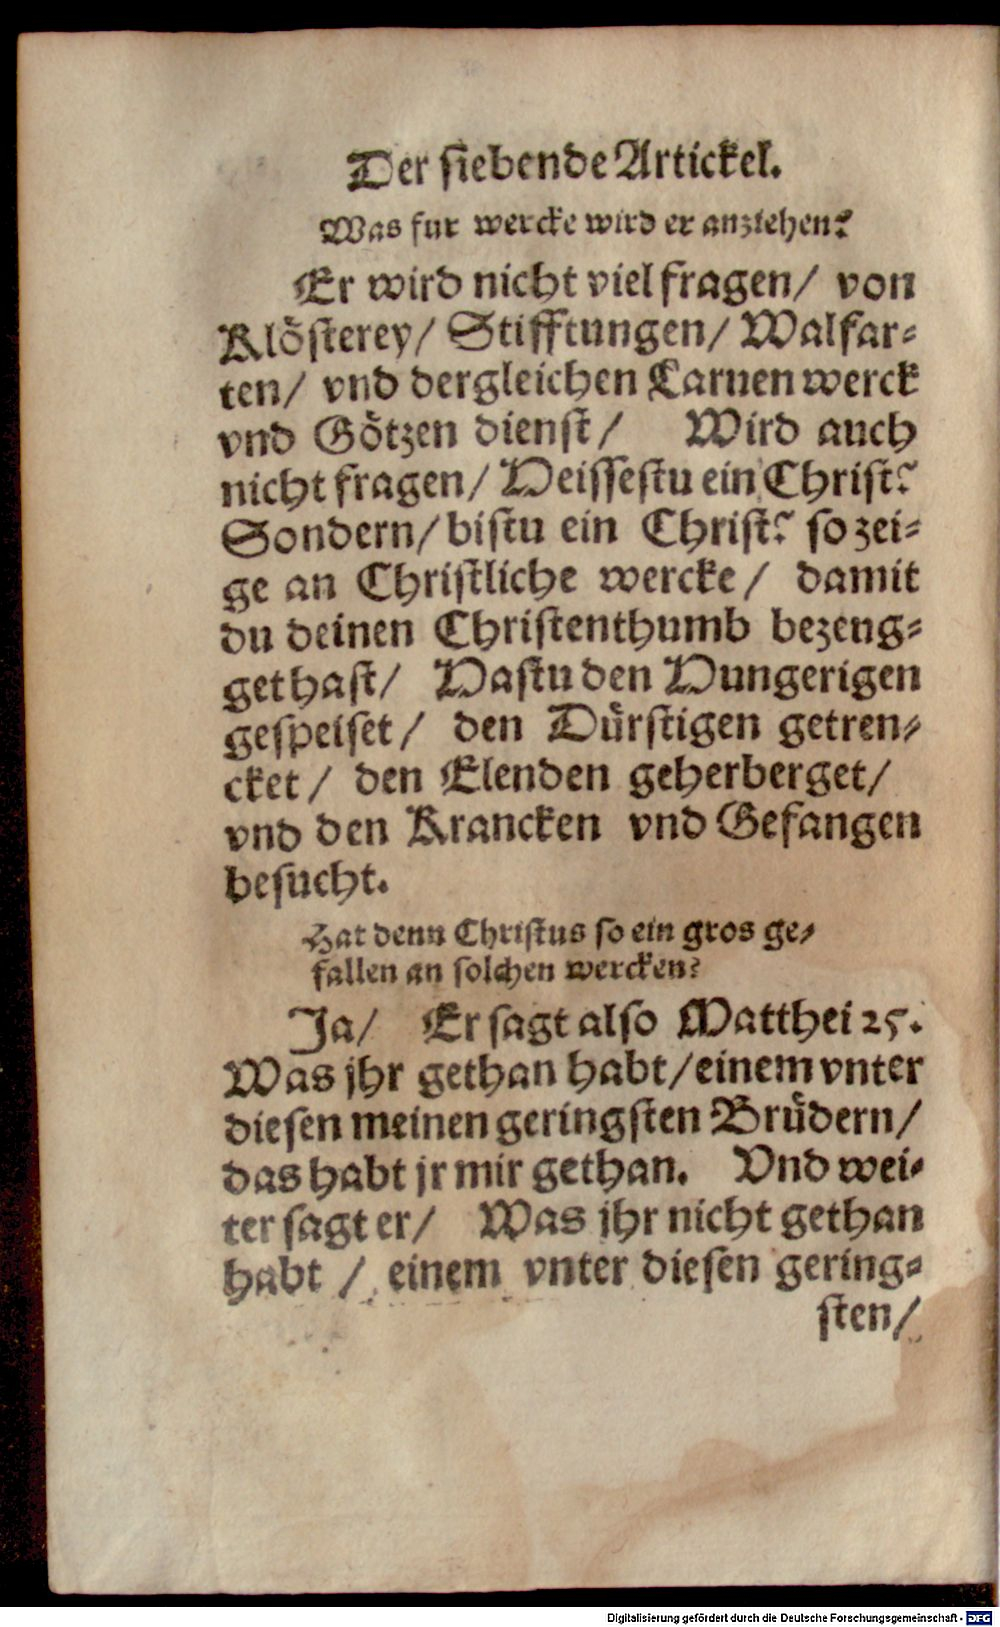 Der siebende Artickel.
Was fur wercke wird er anziehen?
Er wird nicht viel fragen/ von
Klösterey/ Stifftungen/ Walfar-
ten/ vnd dergleichen Laruen werck
vnd Götzen dienst/ Wird auch
nicht fragen/ Heissestu ein Christ?
Sondern/ bistu ein Christ? so zei-
ge an Christliche wercke/ damit
du deinen Christenthumb bezeug-
get hast/ Hastu den Hungerigen
gespeiset/ den Dürstigen getren-
cket/ den Elenden geherberget/
vnd den Krancken vnd Gefangen
besucht.
Hat denn Christus so ein gros ge-
fallen an solchen wercken?
Ja/ Er sagt also Matthei 25.
Was jhr gethan habt/ einem vnter
diesen meinen geringsten Brüdern/
das habt jr mir gethan. Vnd wei-
ter sagt er/ Was jhr nicht gethan
habt / einem vnter diesen gering-
sten/
Digitalisierung gefördert durch die Deutsche Forschungsgemeinschaft - DFG